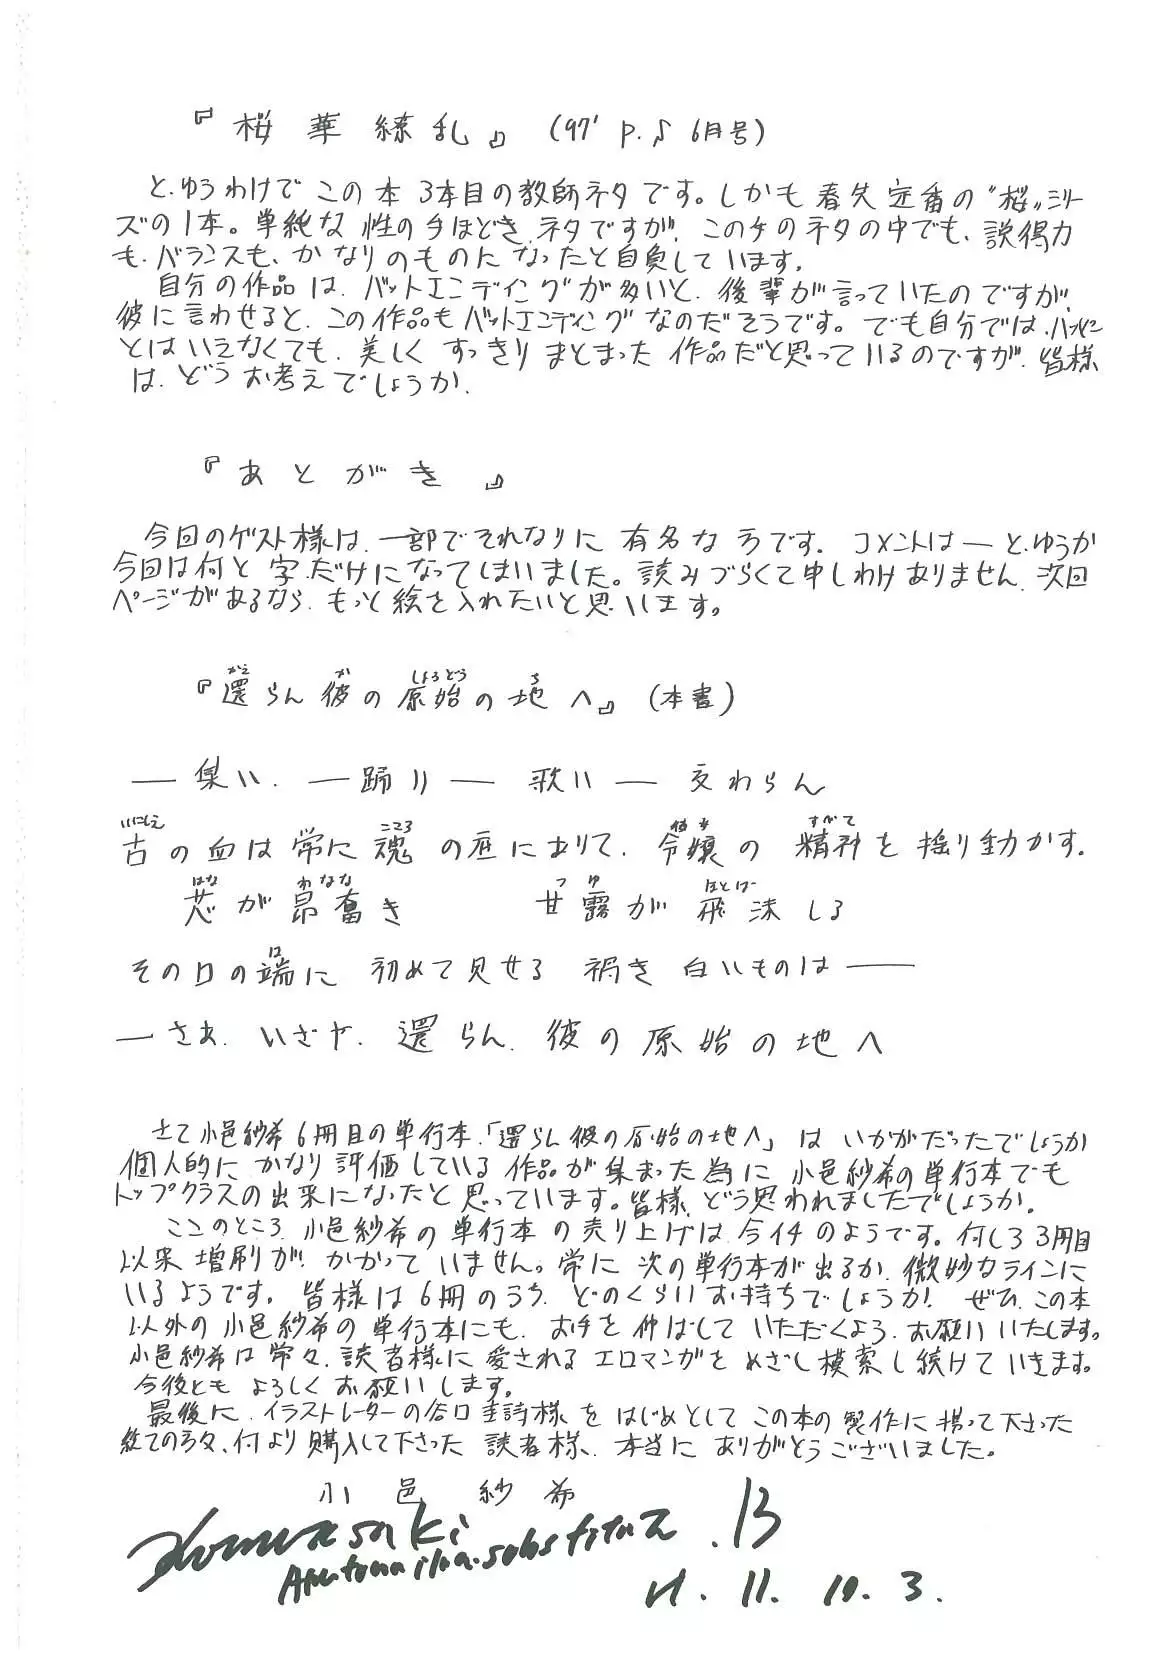 『桜華繚乱』(97' P.♪ 6月号)
と、ゆうわけでこの本3本目の教師ネタです。しかも春先定番の"桜"シリー
ズの1本。単純な性の手ほどきネタですが、この手のネタの中でも、説得力
も、バランスも、かなりのものになったと自負しています。
自分の作品は、バットエンディングが多いと、後輩が言っていたのですが、
彼に言わせると、この作品もバットエンディングなのだそうです。でも自分では、ハッピー
とはいえなくても、美しくすっきりまとまった作品だと思っているのですが、皆様
は、どうお考えでしょうか。
『あとがき』
今回のゲスト様は、一部でそれなりに有名な方です。コメントは—と、ゆうか
今回は何と字だけになってしまいました。読みづらくて申しわけありません、次回
ページがあるなら、もっと絵を入れたいと思います。
かえ か しょろどう ち
『還らん彼の原始の地へ』(本書)
— 集い、— 踊り — 歌い — 交わらん
いにしえ こころ すがて
古の血は常に魂の庭にありて、令嬢の精神を揺り動かす。
はな わなな つゆ ほとば
芯が昂奮き 甘露が飛沫しる
その口の端に 初めて見せる 禍き白いものは —
— さあ、いざや、還らん、彼の原始の地へ
さて小邑紗希6冊目の単行本、「還らん彼の原始の地へ」はいかがだったでしょうか
個人的にかなり評価している作品が集まった為に小邑紗希の単行本でも
トップクラスの出来になったと思っています。皆様、どう思われましたでしょうか。
ここのところ小邑紗希の単行本の売り上げは今イチのようです。何しろ3冊目
以来増刷がかかっていません。常に次の単行本が出るか、微妙なラインに
いるようです。皆様は6冊のうち、どのくらいお持ちでしょうか!ぜひ、この本
以外の小邑紗希の単行本にも、お手を伸ばしていただくよう、お願いいたします。
小邑紗希は常々、読者様に愛されるエロマンガをめざし模索し続けていきます。
今後ともよろしくお願いします。
最後に、イラストレーターの谷口圭詩様をはじめとしてこの本の製作に携って下さった
総ての方々、何より購入して下さった読者様、本当にありがとうございました。
小邑紗希
H.11.10.3.